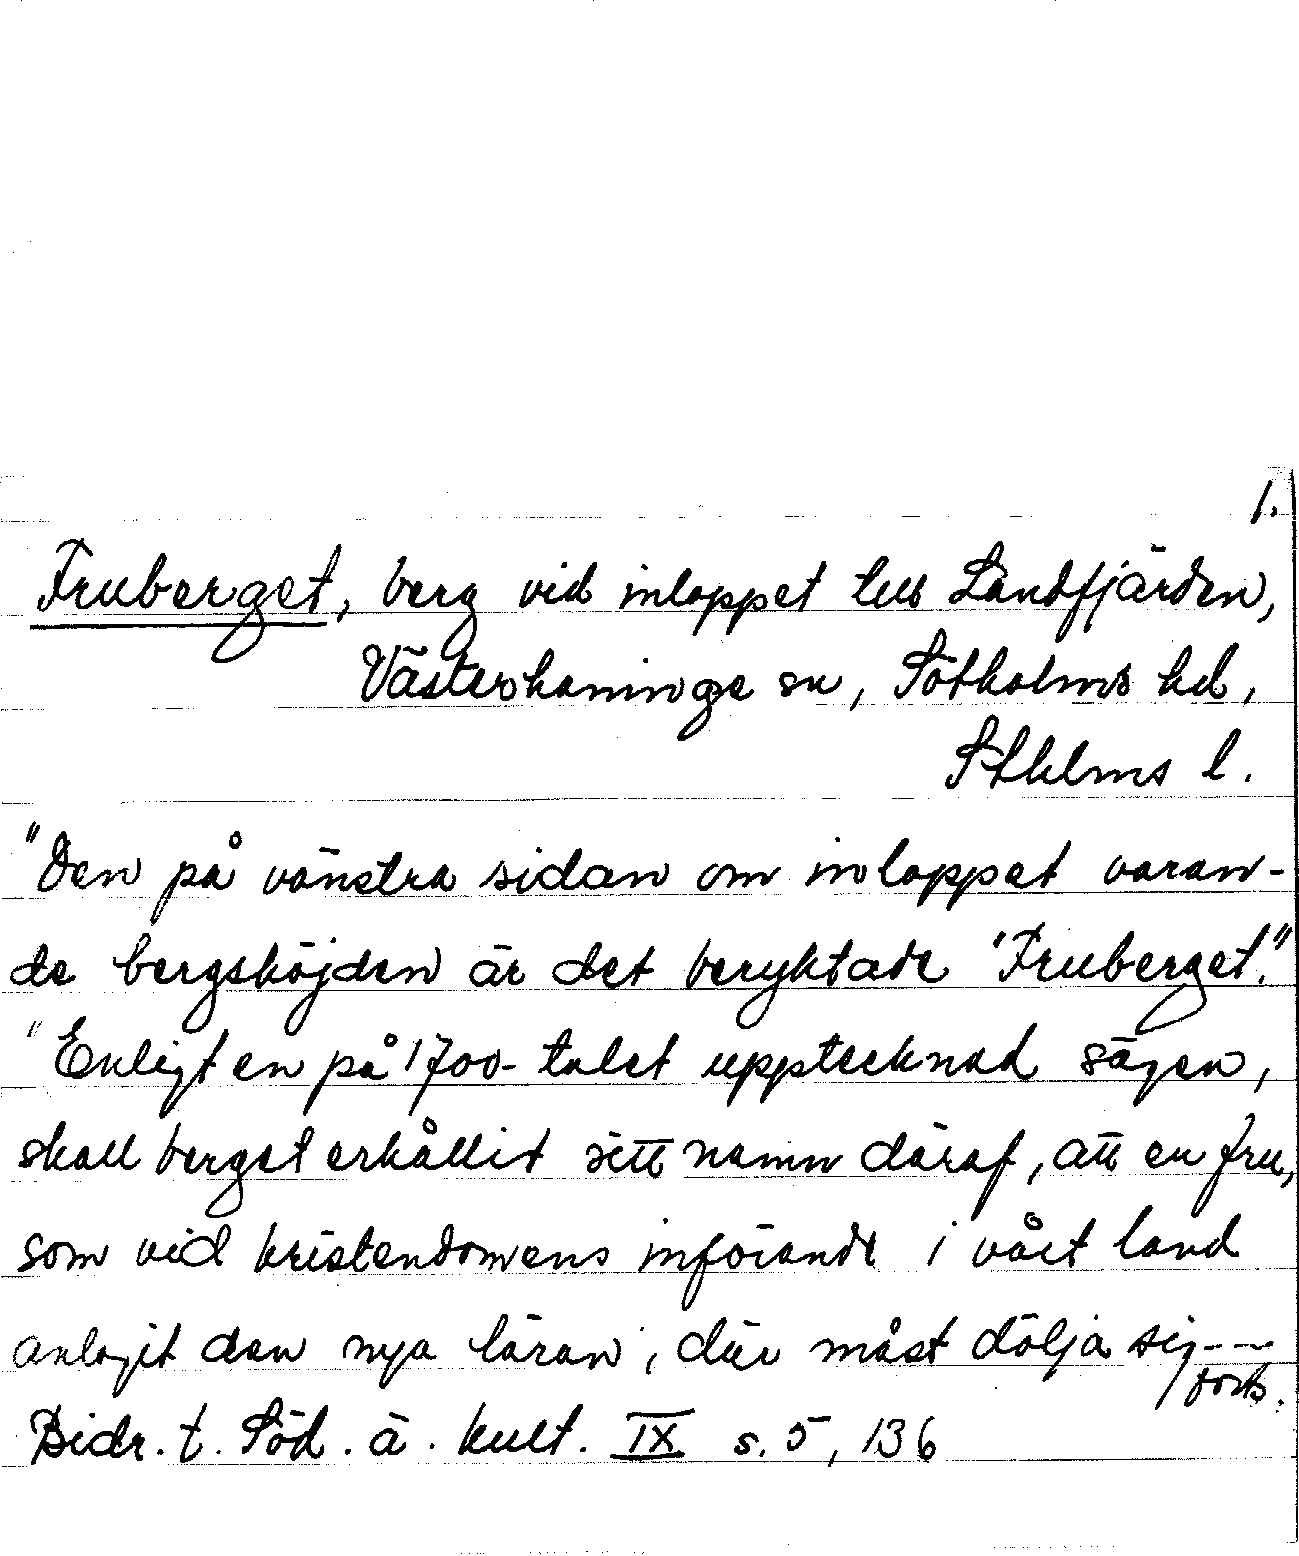 1.
Fruberget, berg vid inloppet till Landfjärden,
Västerhaninge sn, Sotholms hd,
Sthlms l.
"Den på vänstra sidan om inloppet varan-
de bergshöjden är det beryktade "Fruberget."
"Enligt en på 1700-talet upptecknad sägen,
skall berget erhållit sitt namn däraf, att en fru,
som vid kristendomens införande i vårt land
antagit den nya läran, där måst dölja sig---
forts.
Bidr. t. Söd. ä. kult. IX s. 5, 136